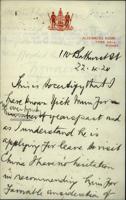 TOWN HALL
SYDNEY
110 Bathurst St
22.4.24
This is to certify that I
have known Yick Man for a
years past and
as I understand he is
applying for leave to visit
China I have no hesitation
in recommending him for
favorable consideration of